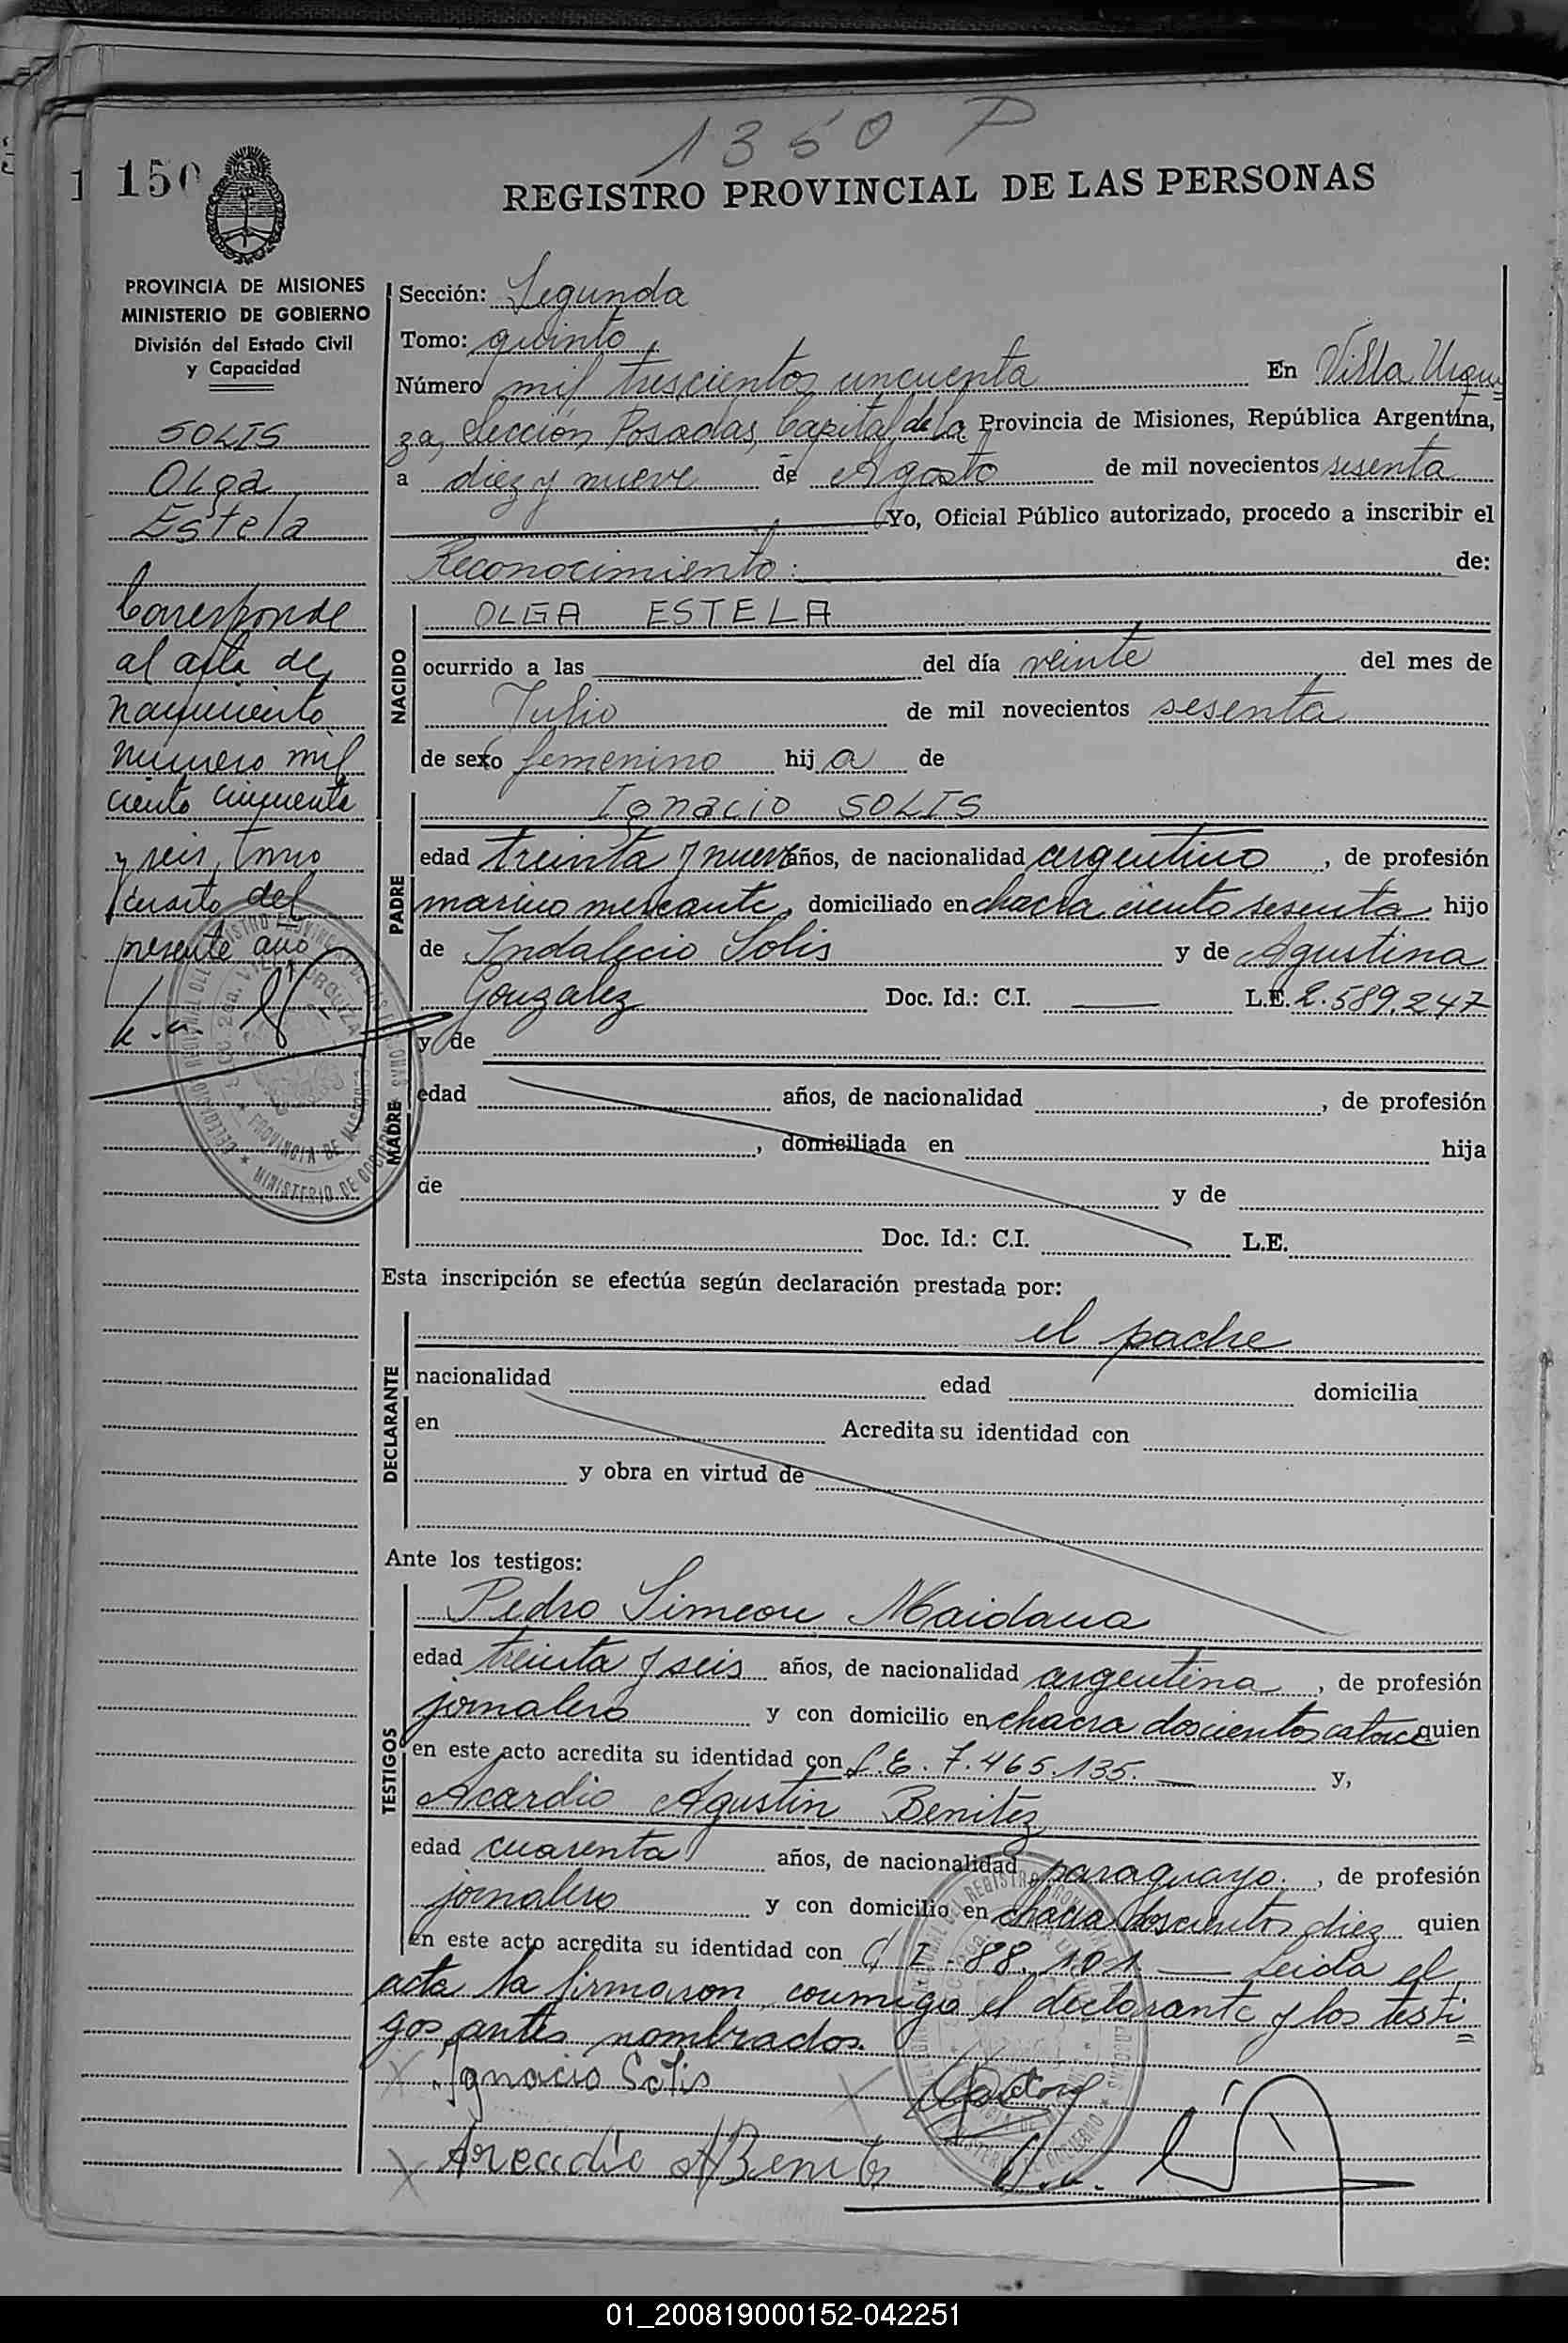 1350 P
1 150
REGISTRO PROVINCIAL DE LAS PERSONAS
PROVINCIA DE MISIONES
MINISTERIO DE GOBIERNO
División del Estado Civil
y Capacidad
SOLIS
Olga
Estela
Corresponde
al acta de
nacimiento
número mil
ciento cincuenta
y seis, tomo
cuarto del
presente año
Sección: Segunda
Tomo: quinto
Número mil trescientos cincuenta En Villa Urqui=
za, Sección Posadas, Capital de la Provincia de Misiones, República Argentina,
a diez y nueve de Agosto de mil novecientos sesenta
Yo, Oficial Público autorizado, procedo a inscribir el
Reconocimiento: de:
NACIDO
OLGA ESTELA
ocurrido a las del día veinte del mes de
Julio de mil novecientos sesenta
de sexo femenino hija de
PADRE
Ignacio SOLIS
edad treinta y nueve años, de nacionalidad argentino, de profesión
marino mercante, domiciliado en chacra ciento sesenta hijo
de Indalecio Solis y de Agustina
Gonzalez Doc. Id.: C.I. L.E. 2.589.247
MADRE
y de
edad años, de nacionalidad , de profesión
, domiciliada en hija
de y de
Doc. Id.: C.I. L.E.
Esta inscripción se efectúa según declaración prestada por:
DECLARANTE
el padre
nacionalidad edad domicilia
en Acredita su identidad con
y obra en virtud de
Ante los testigos:
TESTIGOS
Pedro Simeon Maidana
edad treinta y seis años, de nacionalidad argentina, de profesión
jornalero y con domicilio en chacra doscientos catorce quien
en este acto acredita su identidad con L.E. 7.465.135. y,
Acardio Agustin Benitez
edad cuarenta años, de nacionalidad paraguayo, de profesión
jornalero y con domicilio en chacra doscientos diez quien
en este acto acredita su identidad con C I. 88.101 Leida el
acta la firmaron conmigo el declarante y los testi=
gos antes nombrados.
Ignacio Solis
Arcadio A Benitez
01_200819000152-042251